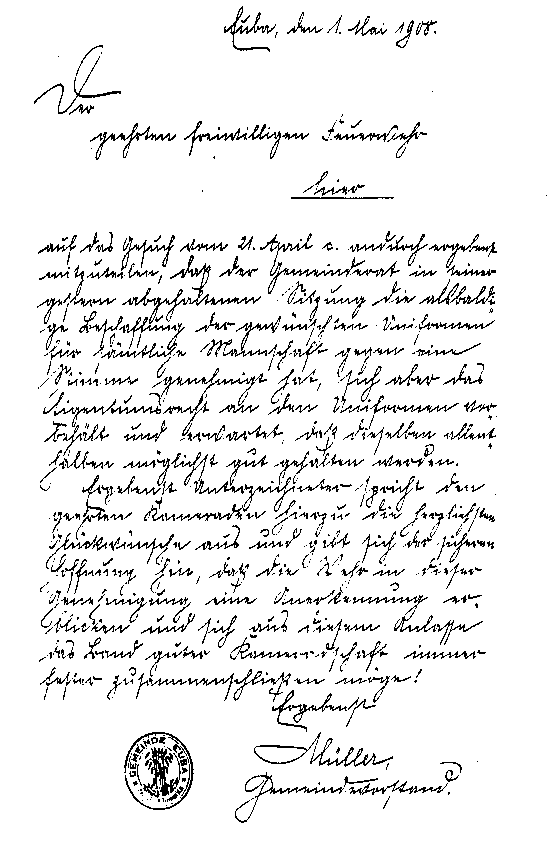 Euba, den 1. Mai 1908.
Der
geehrten freiwilligen Feuerwehr
hier
auf das Gesuch vom 21. April c. andurch ergebenst
mitzuteilen, daß der Gemeinderat in seiner
gestern abgehaltenen Sitzung die alsbaldi-
ge Beschaffung der gewünschten Uniformen
für sämtliche Mannschaft gegen eine
Stimme genehmigt hat, sich aber das
Eigentumsrecht an den Uniformen vor-
behält und erwartet, daß dieselben allent-
halben möglichst gut gehalten werden.
Ergebenst Unterzeichneter spricht den
geehrten Kameraden hierzu die herzlichsten
Glückwünsche aus und gibt sich der sicheren
Hoffnung hin, daß die Wehr in dieser
Genehmigung eine Anerkennung er-
blicken und sich aus diesem Anlasse
das Band guter Kameradschaft immer
fester zusammenschließen möge!
Ergebenst
Müller,
Gemeindevorstand.
GEMEINDE EUBA